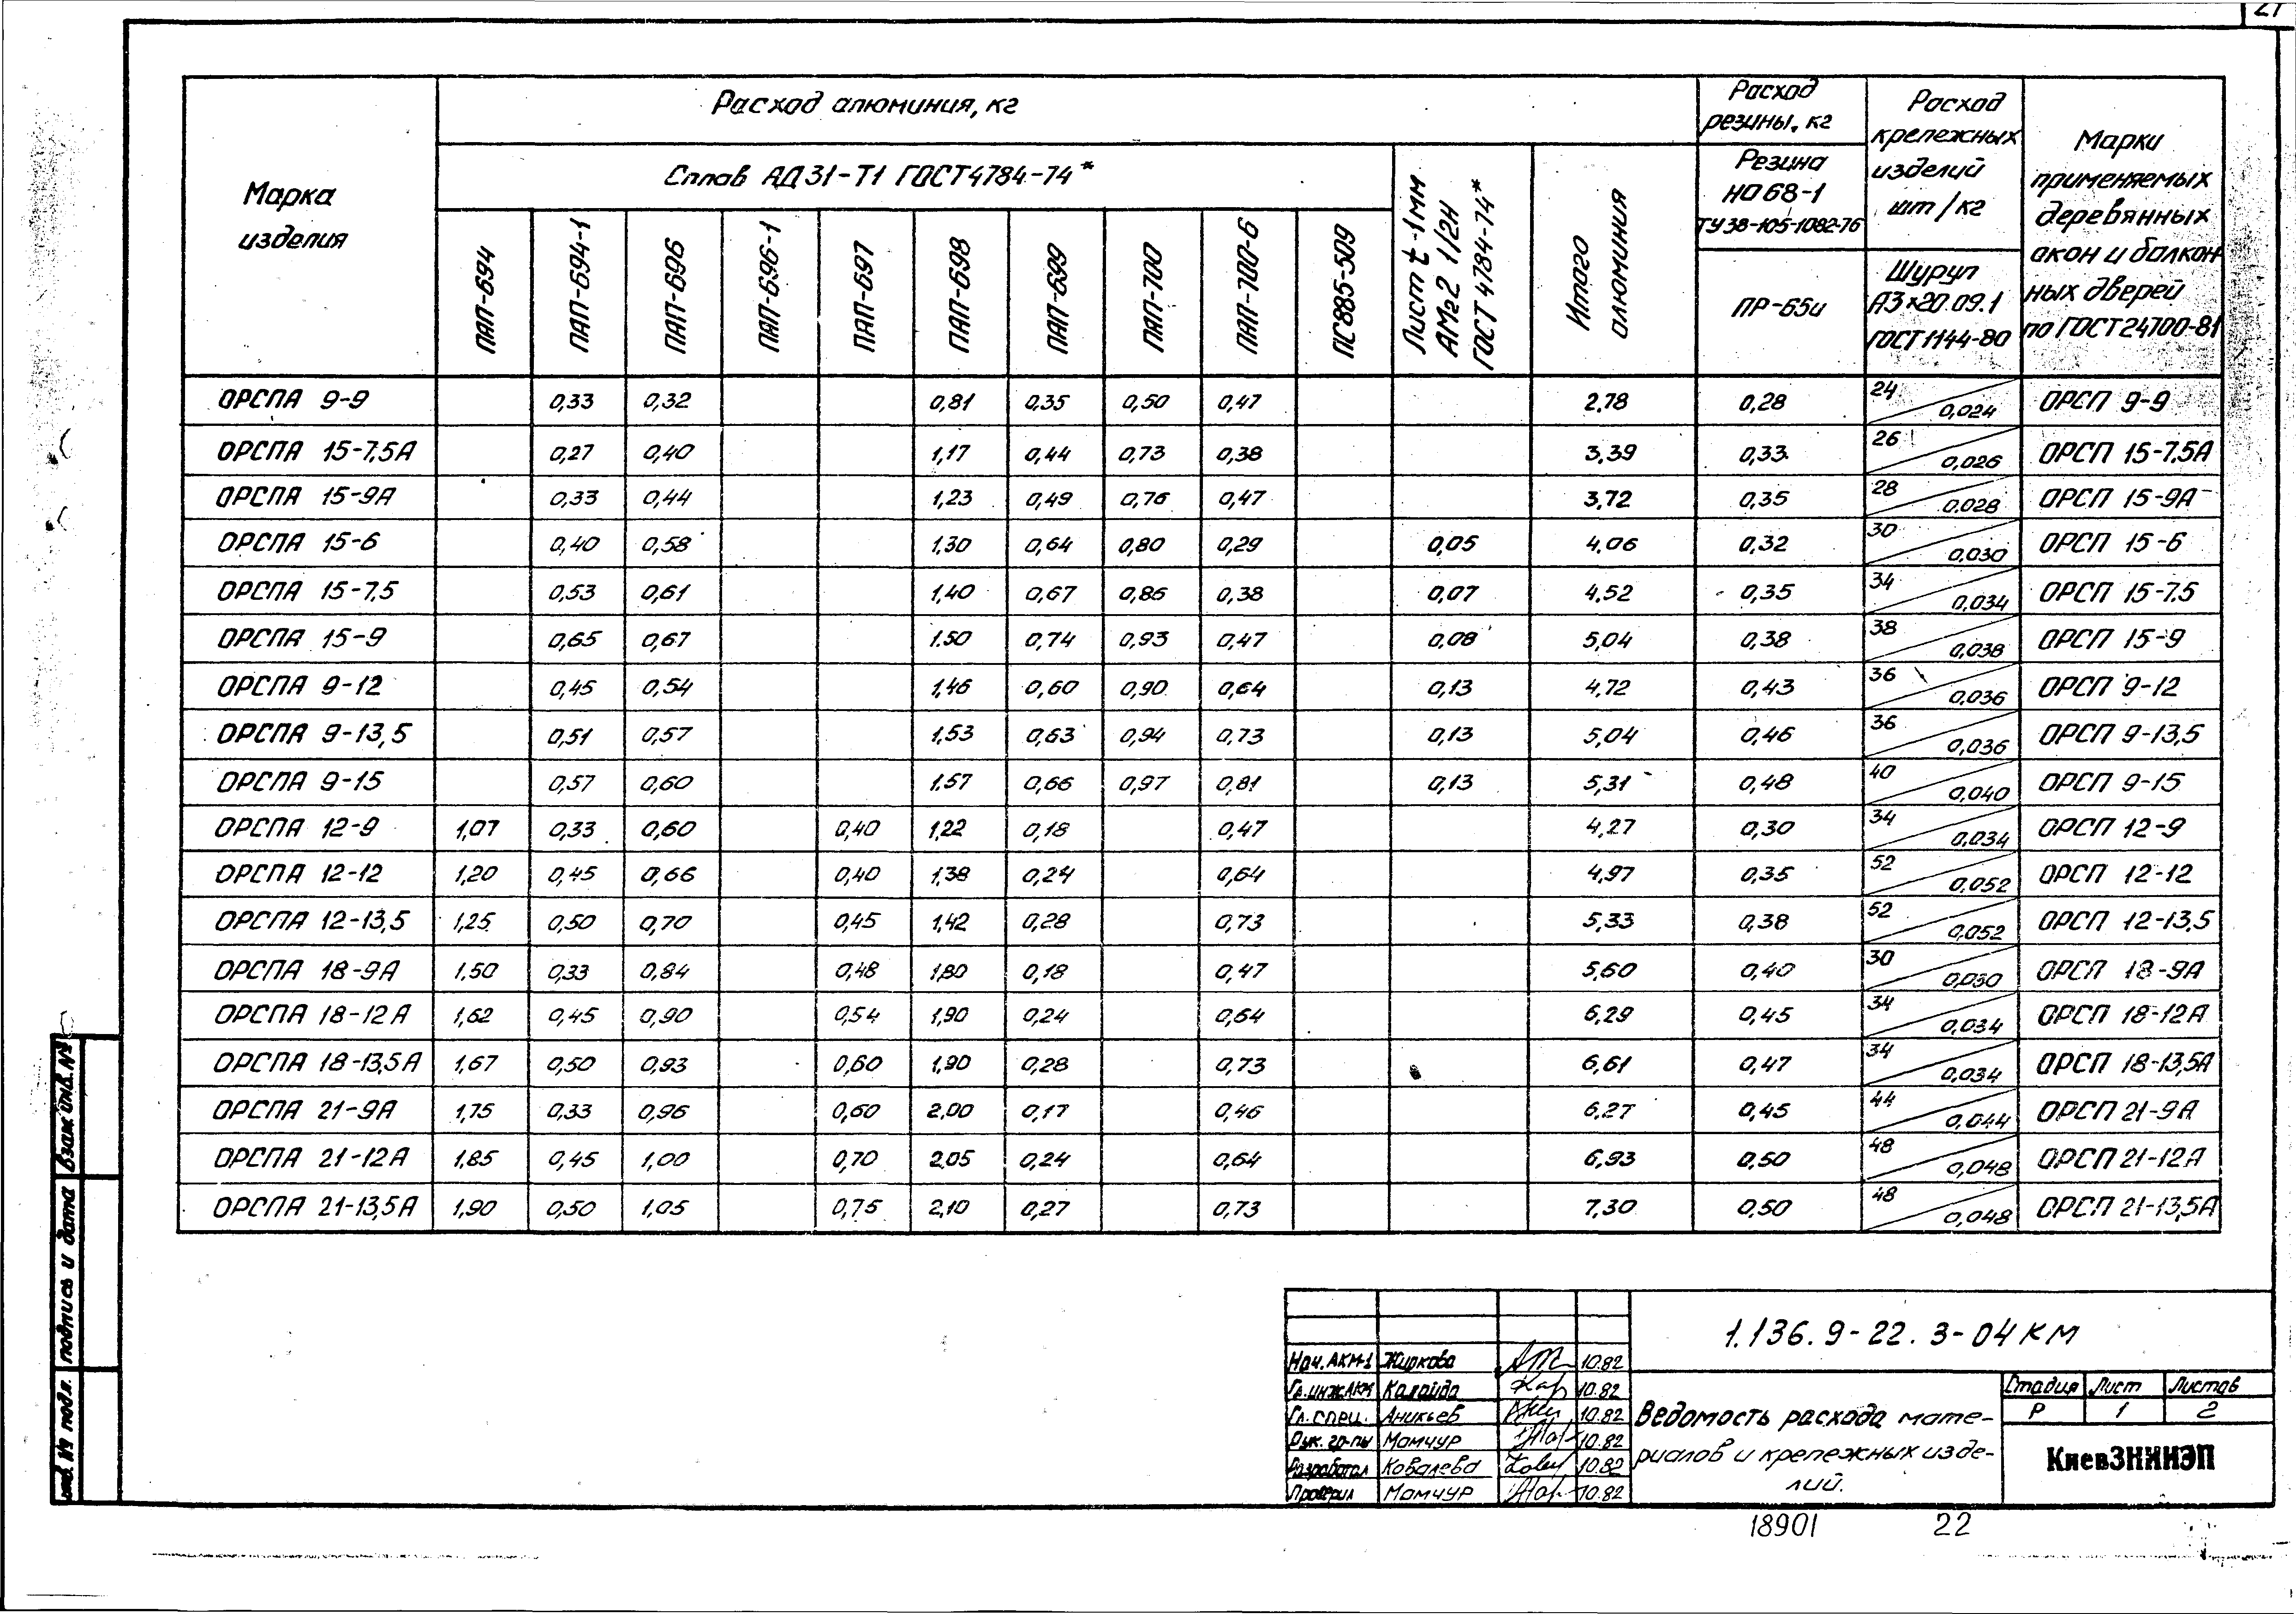 21
Марка изделия
Расход алюминия, кг
Сплав АД31-Т1 ГОСТ4784-74*
ПАП-694
ПАП-694-1
ПАП-696
ПАП-696-1
ПАП-697
ПАП-698
ПАП-699
ПАП-700
ПАП-700-6
ПС885-509
Лист t-1мм АМг2 1/2Н ГОСТ 4784-74*
Итого алюминия
Расход резины, кг
Резина НО 68-1 ТУ38-105-1082-76
ПР-65и
Расход крепежных изделий шт/кг
Шуруп А3×20.09.1 ГОСТ1144-80
Марки применяемых деревянных окон и балконных дверей по ГОСТ24700-81
ОРСПА 9-9 0,33 0,32 0,81 0,35 0,50 0,47 2,78 0,28 24/0,024 ОРСП 9-9
ОРСПА 15-7,5А 0,27 0,40 1,17 0,44 0,73 0,38 3,39 0,33 26/0,026 ОРСП 15-7,5А
ОРСПА 15-9А 0,33 0,44 1,23 0,49 0,76 0,47 3,72 0,35 28/0,028 ОРСП 15-9А
ОРСПА 15-6 0,40 0,58 1,30 0,64 0,80 0,29 0,05 4,06 0,32 30/0,030 ОРСП 15-6
ОРСПА 15-7,5 0,53 0,61 1,40 0,67 0,86 0,38 0,07 4,52 0,35 34/0,034 ОРСП 15-7,5
ОРСПА 15-9 0,65 0,67 1,50 0,74 0,93 0,47 0,08 5,04 0,38 38/0,038 ОРСП 15-9
ОРСПА 9-12 0,45 0,54 1,46 0,60 0,90 0,64 0,13 4,72 0,43 36/0,036 ОРСП 9-12
ОРСПА 9-13,5 0,51 0,57 1,53 0,63 0,94 0,73 0,13 5,04 0,46 36/0,036 ОРСП 9-13,5
ОРСПА 9-15 0,57 0,60 1,57 0,66 0,97 0,81 0,13 5,31 0,48 40/0,040 ОРСП 9-15
ОРСПА 12-9 1,07 0,33 0,60 0,40 1,22 0,18 0,47 4,27 0,30 34/0,034 ОРСП 12-9
ОРСПА 12-12 1,20 0,45 0,66 0,40 1,38 0,24 0,64 4,97 0,35 52/0,052 ОРСП 12-12
ОРСПА 12-13,5 1,25 0,50 0,70 0,45 1,42 0,28 0,73 5,33 0,38 52/0,052 ОРСП 12-13,5
ОРСПА 18-9А 1,50 0,33 0,84 0,48 1,80 0,18 0,47 5,60 0,40 30/0,030 ОРСП 18-9А
ОРСПА 18-12А 1,62 0,45 0,90 0,54 1,90 0,24 0,64 6,29 0,45 34/0,034 ОРСП 18-12А
ОРСПА 18-13,5А 1,67 0,50 0,93 0,60 1,90 0,28 0,73 6,61 0,47 34/0,034 ОРСП 18-13,5А
ОРСПА 21-9А 1,75 0,33 0,96 0,60 2,00 0,17 0,46 6,27 0,45 44/0,044 ОРСП 21-9А
ОРСПА 21-12А 1,85 0,45 1,00 0,70 2,05 0,24 0,64 6,93 0,50 48/0,048 ОРСП 21-12А
ОРСПА 21-13,5А 1,90 0,50 1,05 0,75 2,10 0,27 0,73 7,30 0,50 48/0,048 ОРСП 21-13,5А
Взак инв. №
подпись и дата
инв. № подл.
1.136.9-22.3-04КМ
Нач. АКМ-1 Жиркова 10.82
Гл.инжАКМ Калайда 10.82
Гл. спец. Аникьев 10.82
Рук. гр-пы Мамчур 10.82
Разработал Ковалева 10.82
Проверил Мамчур 10.82
Ведомость расхода мате-
риалов и крепежных изде-
лий.
Стадия Лист Листов
Р 1 2
КиевЗНИИЭП
18901 22